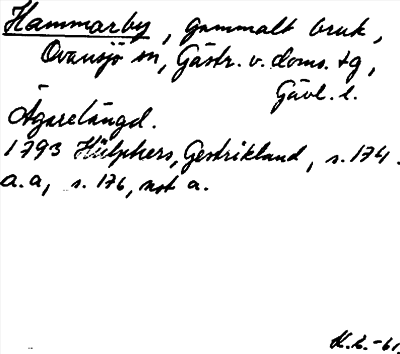 Hammarby, gammalt bruk,
Ovansjö sn, Gästr. v. doms. tg,
Gävl. l.
Ägarelängd.
1793 Hülphers, Gestrikland, s. 174.
a. a, s. 176, not a.
H. L. -61.